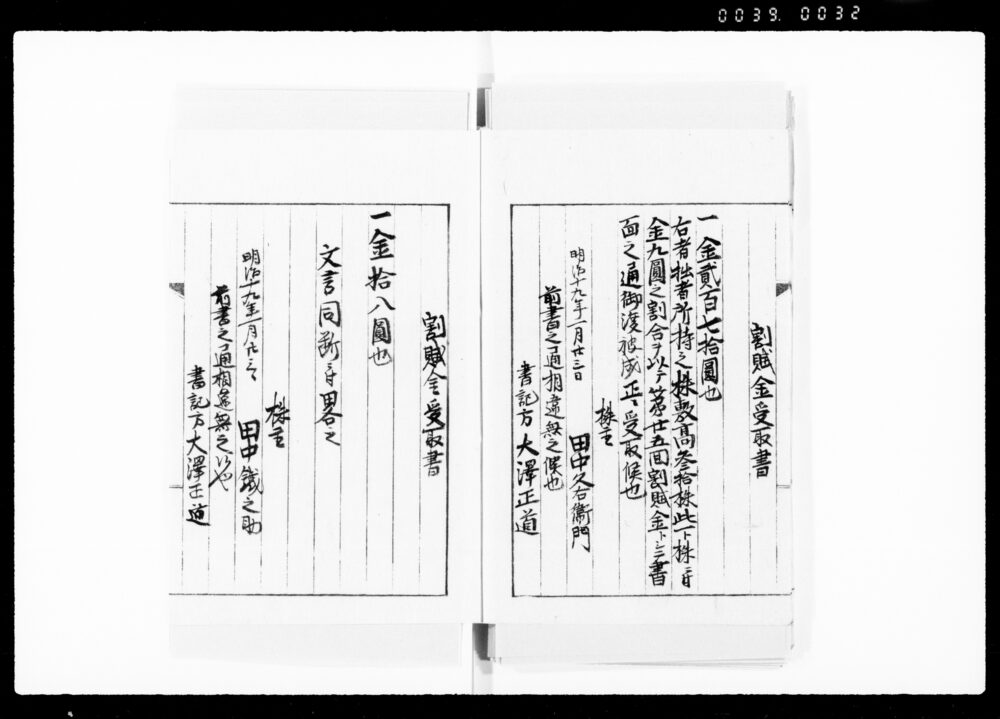 0039. 0032
割賦金受取書
一金貳百七拾圓也
右者拙者所持之株数高參拾株此一株ニ付
金九圓之割合ヲ以テ第廿五回割賦金トシテ書
面之通御渡被成正ニ受取候也
明治十九年一月廿三日
株主
田中久右衞門
前書之通相違無之候也
書記方大澤正道
割賦金受取書
一金拾八圓也
文言同断ニ付畧之
株主
明治十九年一月廿三日
田中鐵之助
前書之通相違無之候也
書記方大澤正道